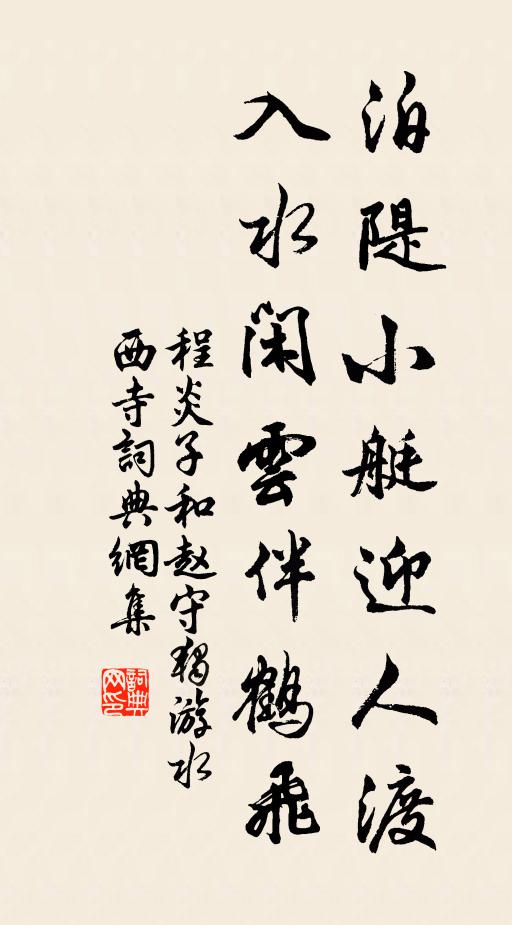 泊隄小艇迎人渡
入水闲雲伴鶴飛
程炎子和赵守獨游水
西寺詞典網集
詞典网印